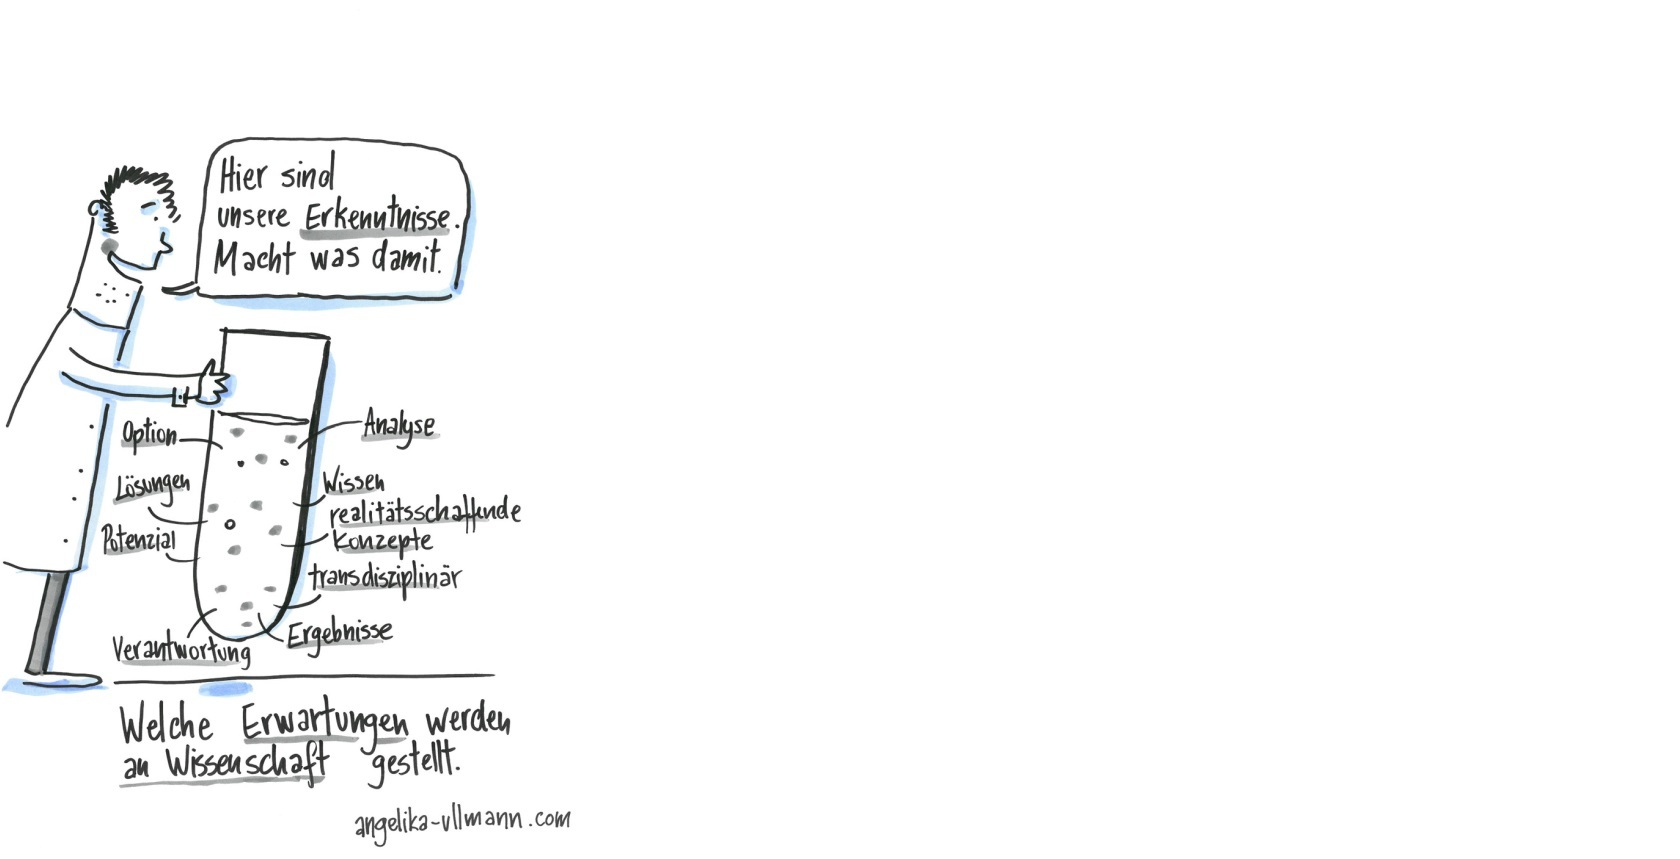 Hier sind
unsere Erkenntnisse.
Macht was damit.
Option
Analyse
Lösungen
Wissen
realitätsschaffende
Konzepte
Potenzial
transdisziplinär
Ergebnisse
Verantwortung
Welche Erwartungen werden
an Wissenschaft gestellt.
angelika-ullmann.com